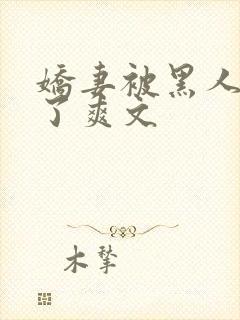 娇妻被黑人
了爽文
木犂